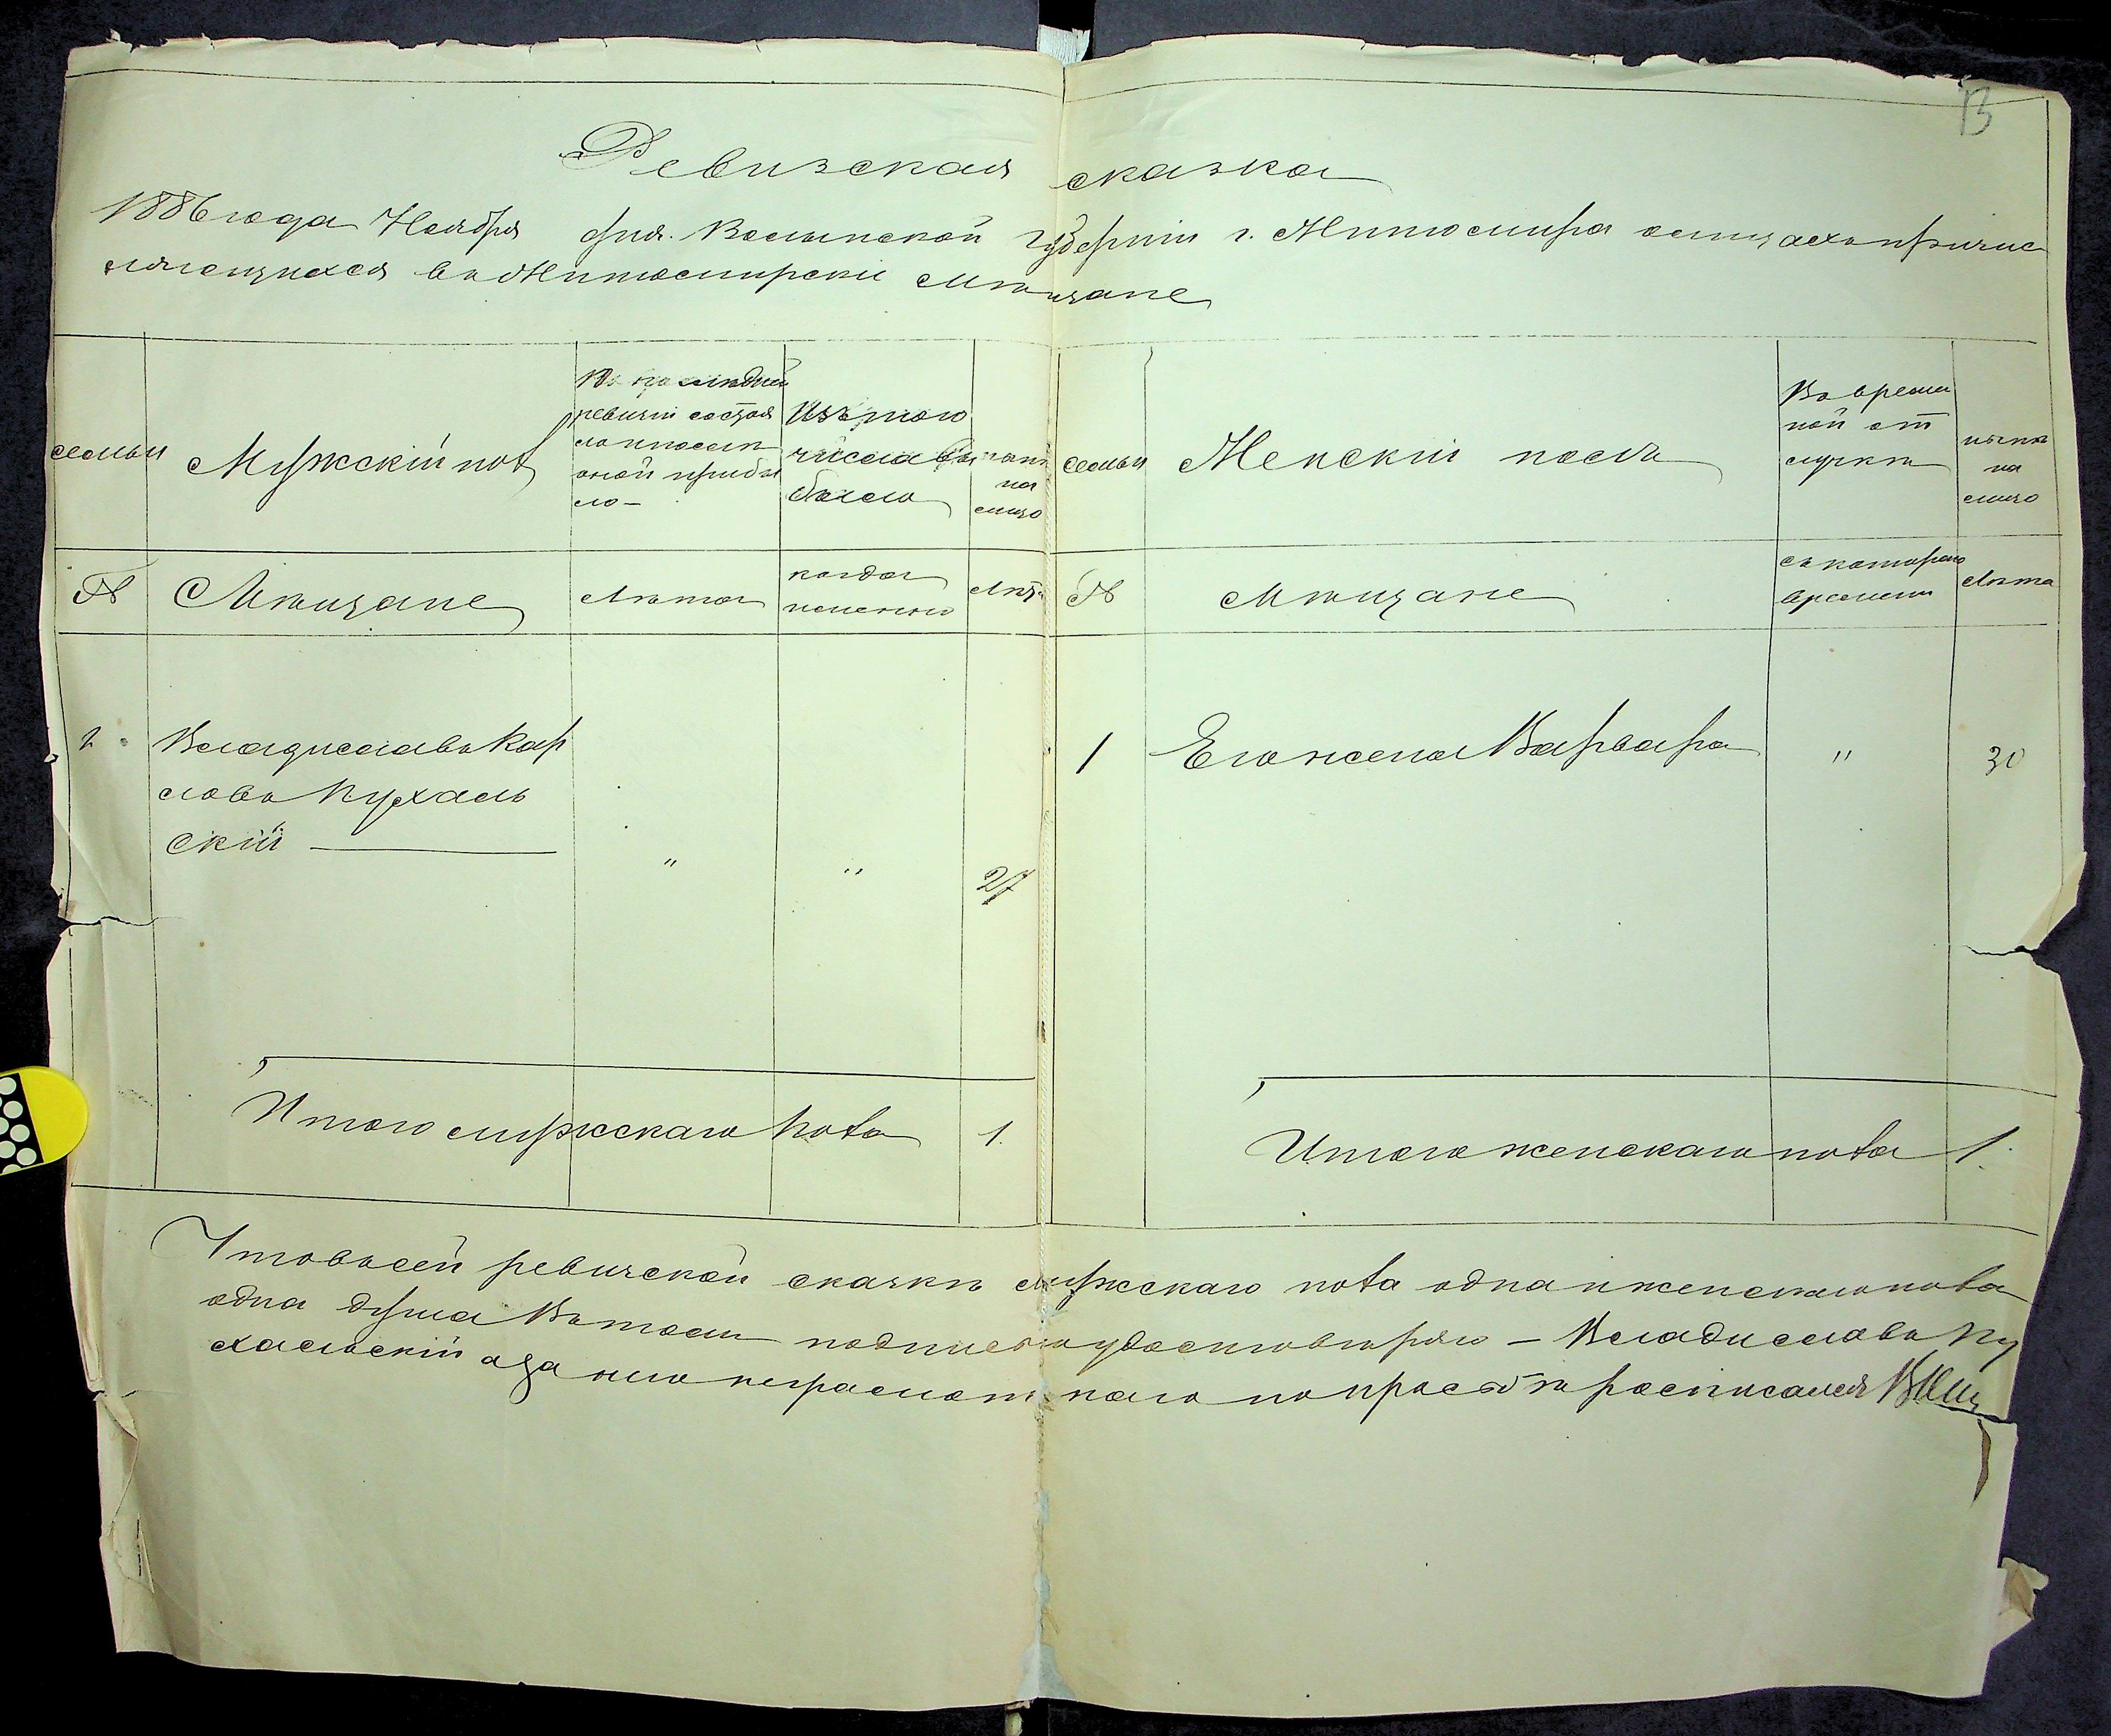 13
Ревизская сказка
1886 года Ноября дня. Волынской губернии г. Житомира о лицахъ причис
ляющихся въ Житомирскіе Мѣщане
семьи
Мужскій пол
По последней ревизіи состоя ло и после оной прибы ло -
Изъ того числа вы было
нынѣ на лицо
семьи
Женскій полъ
Во времен ной от лучкѣ
нынѣ на лицо
№
Мѣщане
Лѣта
когда именно
Лѣта
№
Мѣщане
съ котораго времени
Лѣта
1
Владиславъ Кар
ловъ Пухаль
скій
"
"
27
1
Его жена Варвара
"
30
Итого мужскаго пола
1.
Итого женскаго пола
1.
Что въ сей ревизской сказкѣ мужскаго пола одна и женскаго пола
одна душа въ томъ подписью удостовѣряю - Владиславъ Пу
хальскій а за него неграмотнаго по просьбѣ росписался